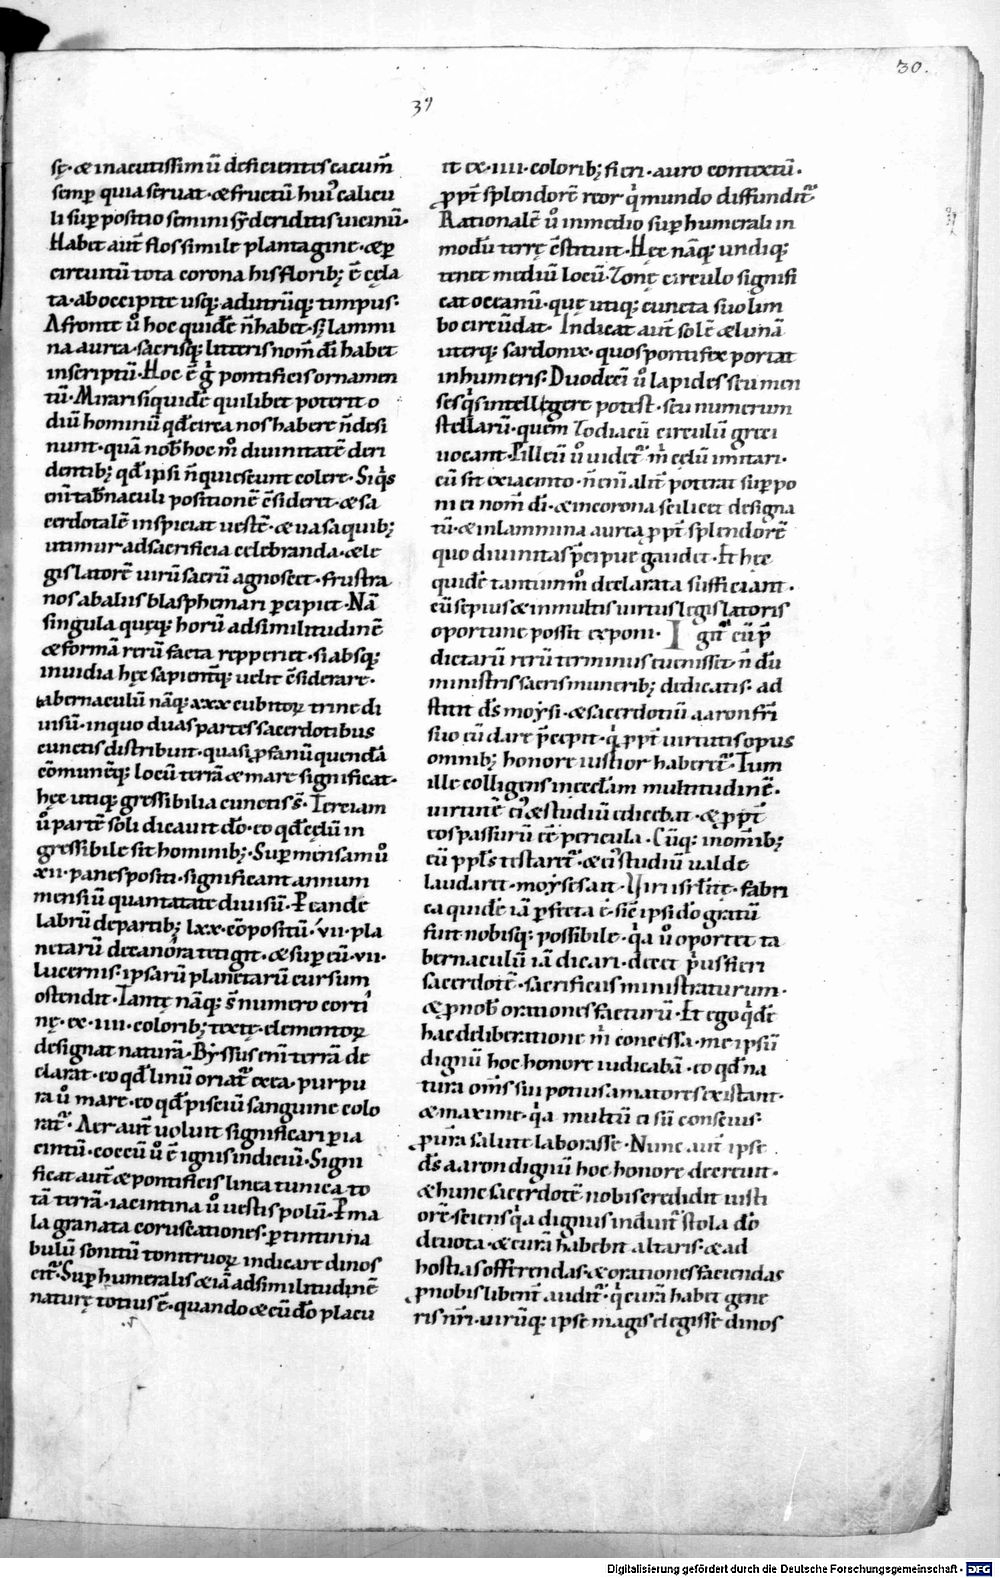 30.
39
sę· & inacutissimū deficientes cacum̄
semp̱ quia seruat· & fructū hui᷒ calicu
li sup̱ positio seminis ẏderiditis uicinū·
Habet aut̄ flos simile plantagine· & p̱
circuitū tota corona his florib; ē cęla
ta· aboccipite usq; ad utrūq; timpus·
Afronte ů hoc quidē n̄ habet· s; lammi
na aurea· sacrisq; litteris nom̄ dī habet
inscriptū· Hoc ē g̊ pontificis ornamen
tū· Mirari siquidē quilibet poterit o
diū hominū qđ circa nos habere n̄ desi
nunt· quā nob̄ hoc m̊ diuinitatē deri
dentib; qđ ipsi n̄ quiescunt colere· Siq̇s
eni̅ tab̄naculi positionē c̄sideret· & sa
cerdotalē inspiciat uestē· & uasa quib;
utimur ad sacrificia celebranda· & le
gislatorē uirū sacrū agnoscet· frustra
nos ab aliis blasphemari p̱cipiet· Nā
singula queq; horū ad similitudinē
& formā rerū facta repperiet· si absq;
inuidia hęc sapient̄q; uelit c̄siderare·
tabernaculū nāq; xxx cubitoꝝ trine di
uisū· in quo duas partes sacerdotibus
cunctis distribuit· quasi ꝓfanū quendā
cōmunēq; locū terrā & mare significat·
hęc utiq; gressibilia cunctis s̄· Terciam
ů partē soli dicauit dō· eo qđ cęlū in
gressibile sit hominib; Sup̱ mensam ů
xii· panes positi· significant annum
mensiū quantatate diuisū· P̱ cande
labrū departib; lxx· cōpositū· vii· pla
netarū decanóra tetigit· & sup̱ eū· vii·
lucernis· ipsarū planetarū cursum
ostendit· Tantę nāq; s̄ numero corti
nę· ex· iiii· colorib; textę· elementoꝝ
designat naturā· Byssus eni̅ terrā de
clarat· eo qđ linū oriat̄ exea· purpu
ra ů mare· eo qđ pisciū sanguine colo
rat̄· Aer aut̄ uoluit significari p̱ ia
cintū· coccū ů ē ignis indiciū· Signi
ficat aut̄ & pontificis linea tunica to
tā terrā· iacintina ů uestis polū· P̱ ma
la granata coruscationes· p̱ tintinna
bulū sonitū tonitruoꝝ indicare dinos
cit̄· Sup̱ humeralis & iā ad similitudinē
naturę totius ē· quando & cūdō placu
it ex· iiii· colorib; fieri· auro contextū·
ꝓpt̄ splendorē reor q̇ mundo diffundit̄·
Rationalē ů in medio sup̱ humerali in
modū terrę c̄stituit· Hęc nāq; undiq;
tenet mediū locū· Zonę circulo signifi
cat oceanū· quę utiq; cuncta suo lim
bo circūdat· Indicat aut̄ solē & lunā
uterq; sardonix· quos pontifex portat
in humeris· Duodeci̅ ů lapides seu men
ses q̇s intellegere potest· seu numerum
stellarū· quem Zodiacū circulū greci
uocant· Pilleū ů uidet̄ ṁ cęlū imitari·
cū sit exiacinto· n̄ eni̅ alit̄ poterat sup̱ po
ni ei nom̄ dī· & in corona scilicet designa
tū· & in lammina aurea ꝓpt̄ splendorē
quo diuinitas p̄cipue gaudet· Et hęc
quidē tantummō declarata sufficiant·
cū sepius & in multis uirtus legislatoris
oportune possit exponi· Igit̄ cū p̄
dictarū rerū terminus euenisset n̄ dū
ministris sacris munerib; dedicatis· ad
stitit ds̄ moysi· & sacerdotiū aaron fr̄i
suo cū dare p̄cepit· q̇ ꝓpt̄ uirtutis opus
omnib; honore iustior haberet̄· Tum
ille colligens inęcclam̄ multitudinē·
uirtutē ei᷒ & studiū edicebat· & ꝓpt̄
eos passurū eē pericula· Cūq; inom̄ib;
cū ppl̄s testaret̄· & ei᷒ studiū ualde
laudaret· moyses ait· Viri isrl̄ite· fabri
ca quidē iā p̱fecta ē· sic̄ ipsi dō gratū
fuit nobisq; possibile· q̇a ů oportet ta
bernaculū iā dicari· decet ṗus fieri
sacerdotē· sacrificiis ministraturum·
& ꝓ nob̄ orationes facturū· Et ego q̇dē
hac deliberatione ṁ concessa· me ipsū
dignū hoc honore iudicabā· eo qđ na
tura om̄s sui potius amatores existant·
& maxime· q̇a multū ei sū conscius·
ꝓ ura̅ salute laborasse· Nunc aut̄ ipse
ds̄ aaron dignū hoc honore decreuit·
& hunc sacerdotē nobis credidit iusti
orē· sciens q̇a dignius induit̄ stola dō
deuota· & curā habebit altaris· & ad
hostias offerendas· & orationes faciendas
ꝓ nobis libent̄ audit̄· q̇ curā habet gene
ris nr̄i· uirūq; ipse magis elegisse dinos
Digitalisierung gefördert durch die Deutsche Forschungsgemeinschaft · DFG